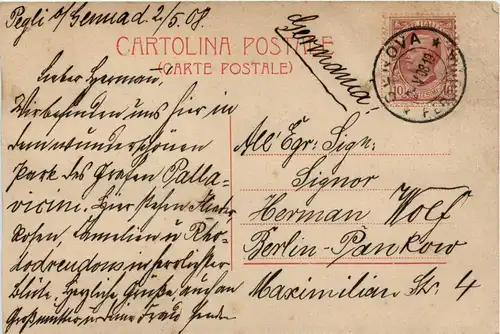 Pegli b/Genua d. 2/5.08.
CARTOLINA POSTALE
(CARTE POSTALE)
Germania!
GENOVA
10
Lieber Hermann,
Wir befinden uns hier in
dem wunderschönen
Park des Grafen Palla-
vicini. Hier stehen
Rosen, Camelien u. Rho-
dodrendons in herrlichster
Blüte. Herzliche Grüße auch an
Großmutter u.
All' Egr: Sign:
Signor
Herman Wolf
Berlin-Pankow
Maximilian Str. 4